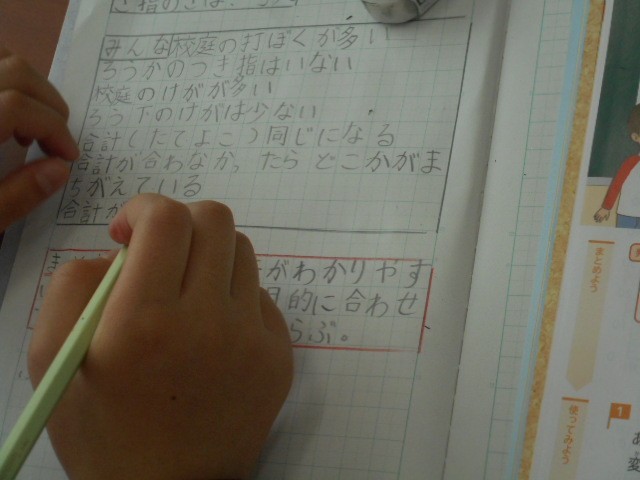 みんな校庭の打ぼくが多い
ろうかのつき指はいない
校庭のけがが多い
ろう下のけがは少ない
合計(たてよこ)同じになる
合計が合わなかったらどこかがま
ちがえている
合計が
がわかりやす
目的に合わせ
らぶ。
まとめよう
使ってみよう
1
あ
変